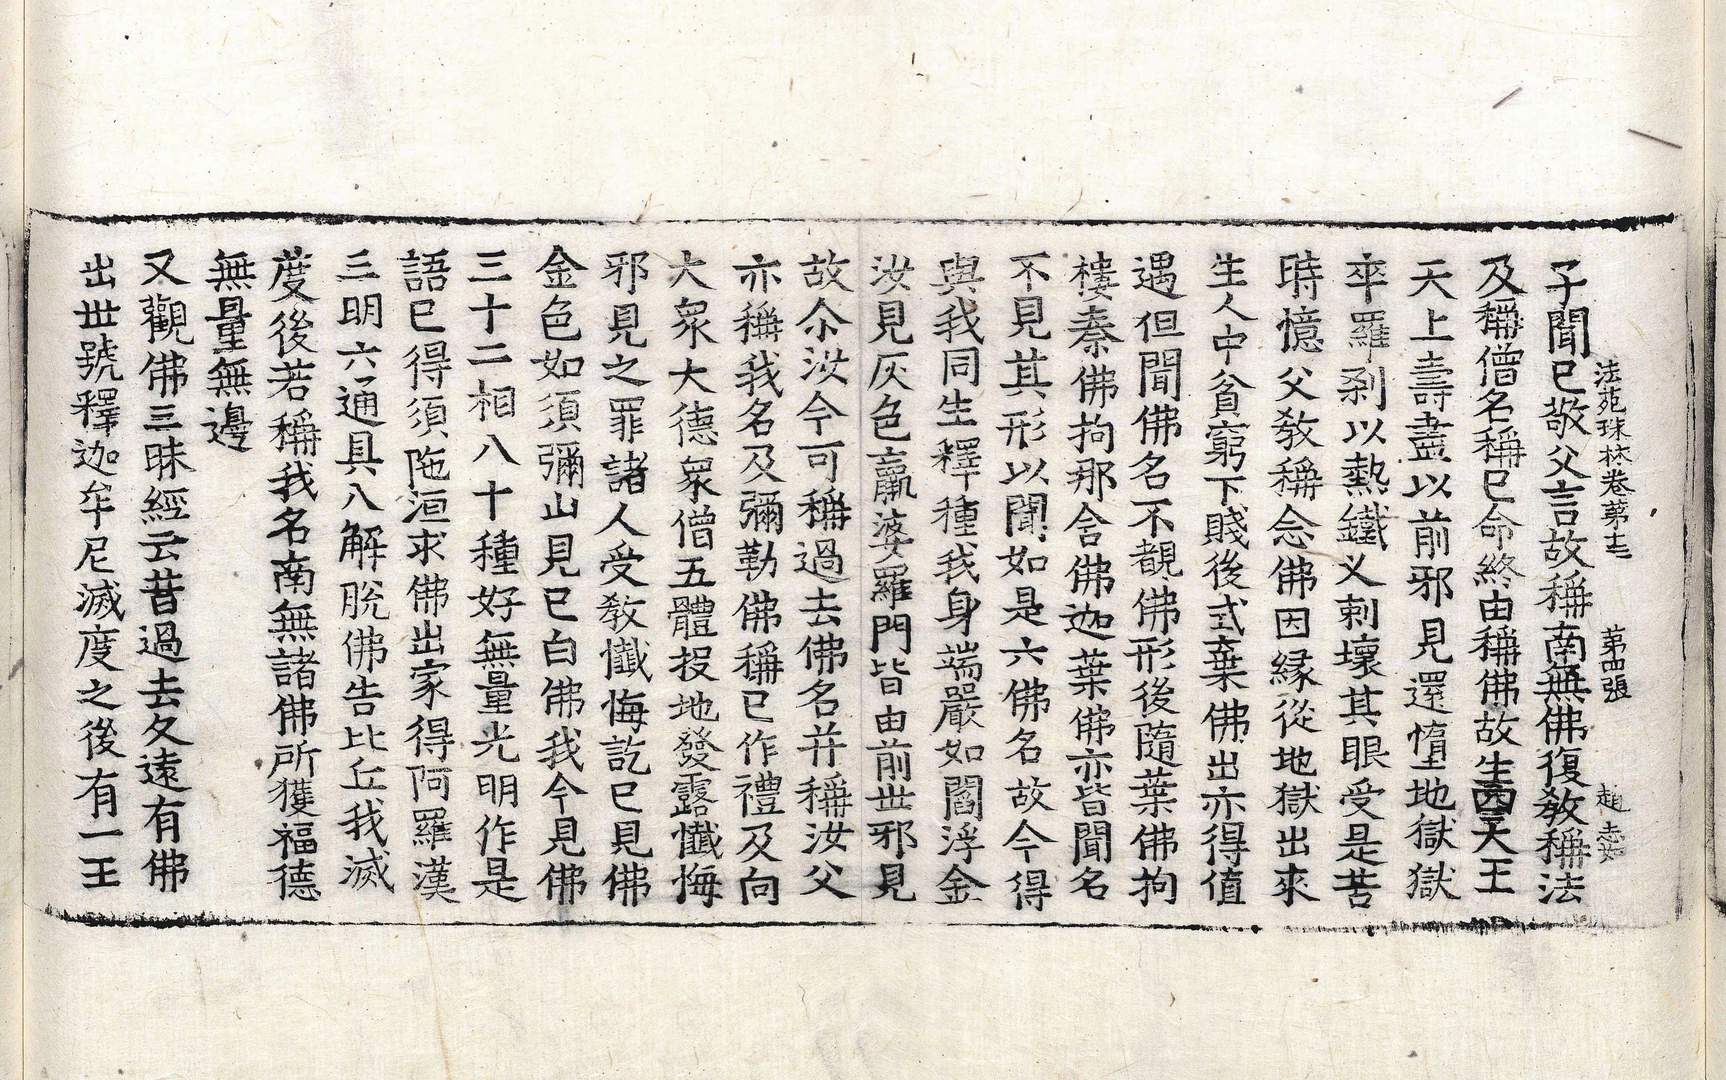 子聞已敬父言故稱南無佛復教稱法
法苑珠林卷第十三 第四張 趙
及稱僧名稱已命終由稱佛故生四天王
天上壽盡以前邪見還墮地獄獄
卒羅剎以熱鐵义刺壞其眼受是苦
時憶父教稱念佛因緣從地獄出來
生人中貧窮下賤後式棄佛出亦得值
遇但聞佛名不覩佛形後隨葉佛拘
樓秦佛拘那含佛迦葉佛亦皆聞名
不見其形以聞如是六佛名故今得
與我同生釋種我身端嚴如閻浮金
汝見灰色羸婆羅門皆由前世邪見
故尒汝今可稱過去佛名并稱汝父
亦稱我名及彌勒佛稱已作禮及向
大眾大德眾僧五體投地發露懺悔
邪見之罪諸人受教懺悔訖已見佛
金色如須彌山見已白佛我今見佛
三十二相八十種好無量光明作是
語已得須陁洹求佛出家得阿羅漢
三明六通具八解脫佛告比丘我滅
度後若稱我名南無諸佛所獲福德
無量無邊
又觀佛三昧經云昔過去久遠有佛
出世號釋迦牟尼滅度之後有一王